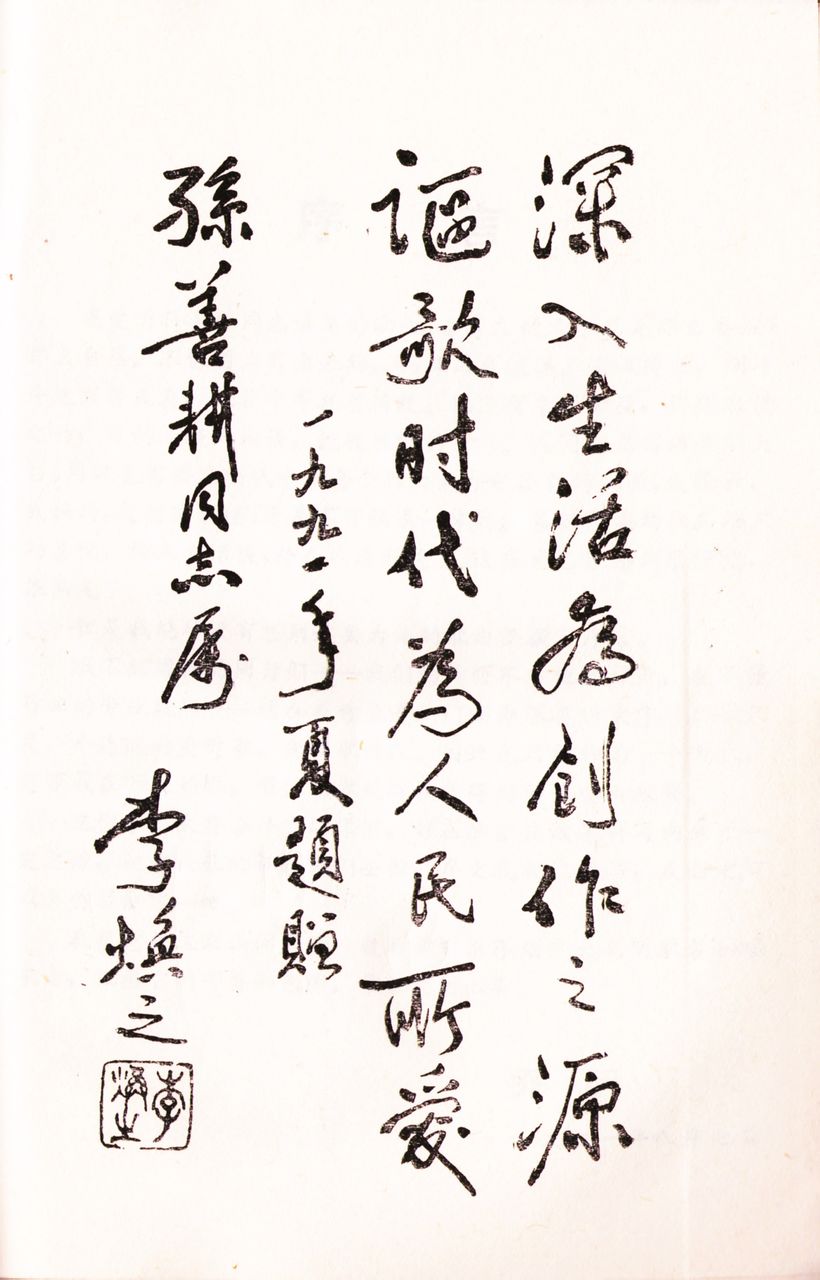 深入生活为創作之源
謳歌时代為人民所愛
一九九一年夏題贈
孫善耕同志属
李焕之
李焕之